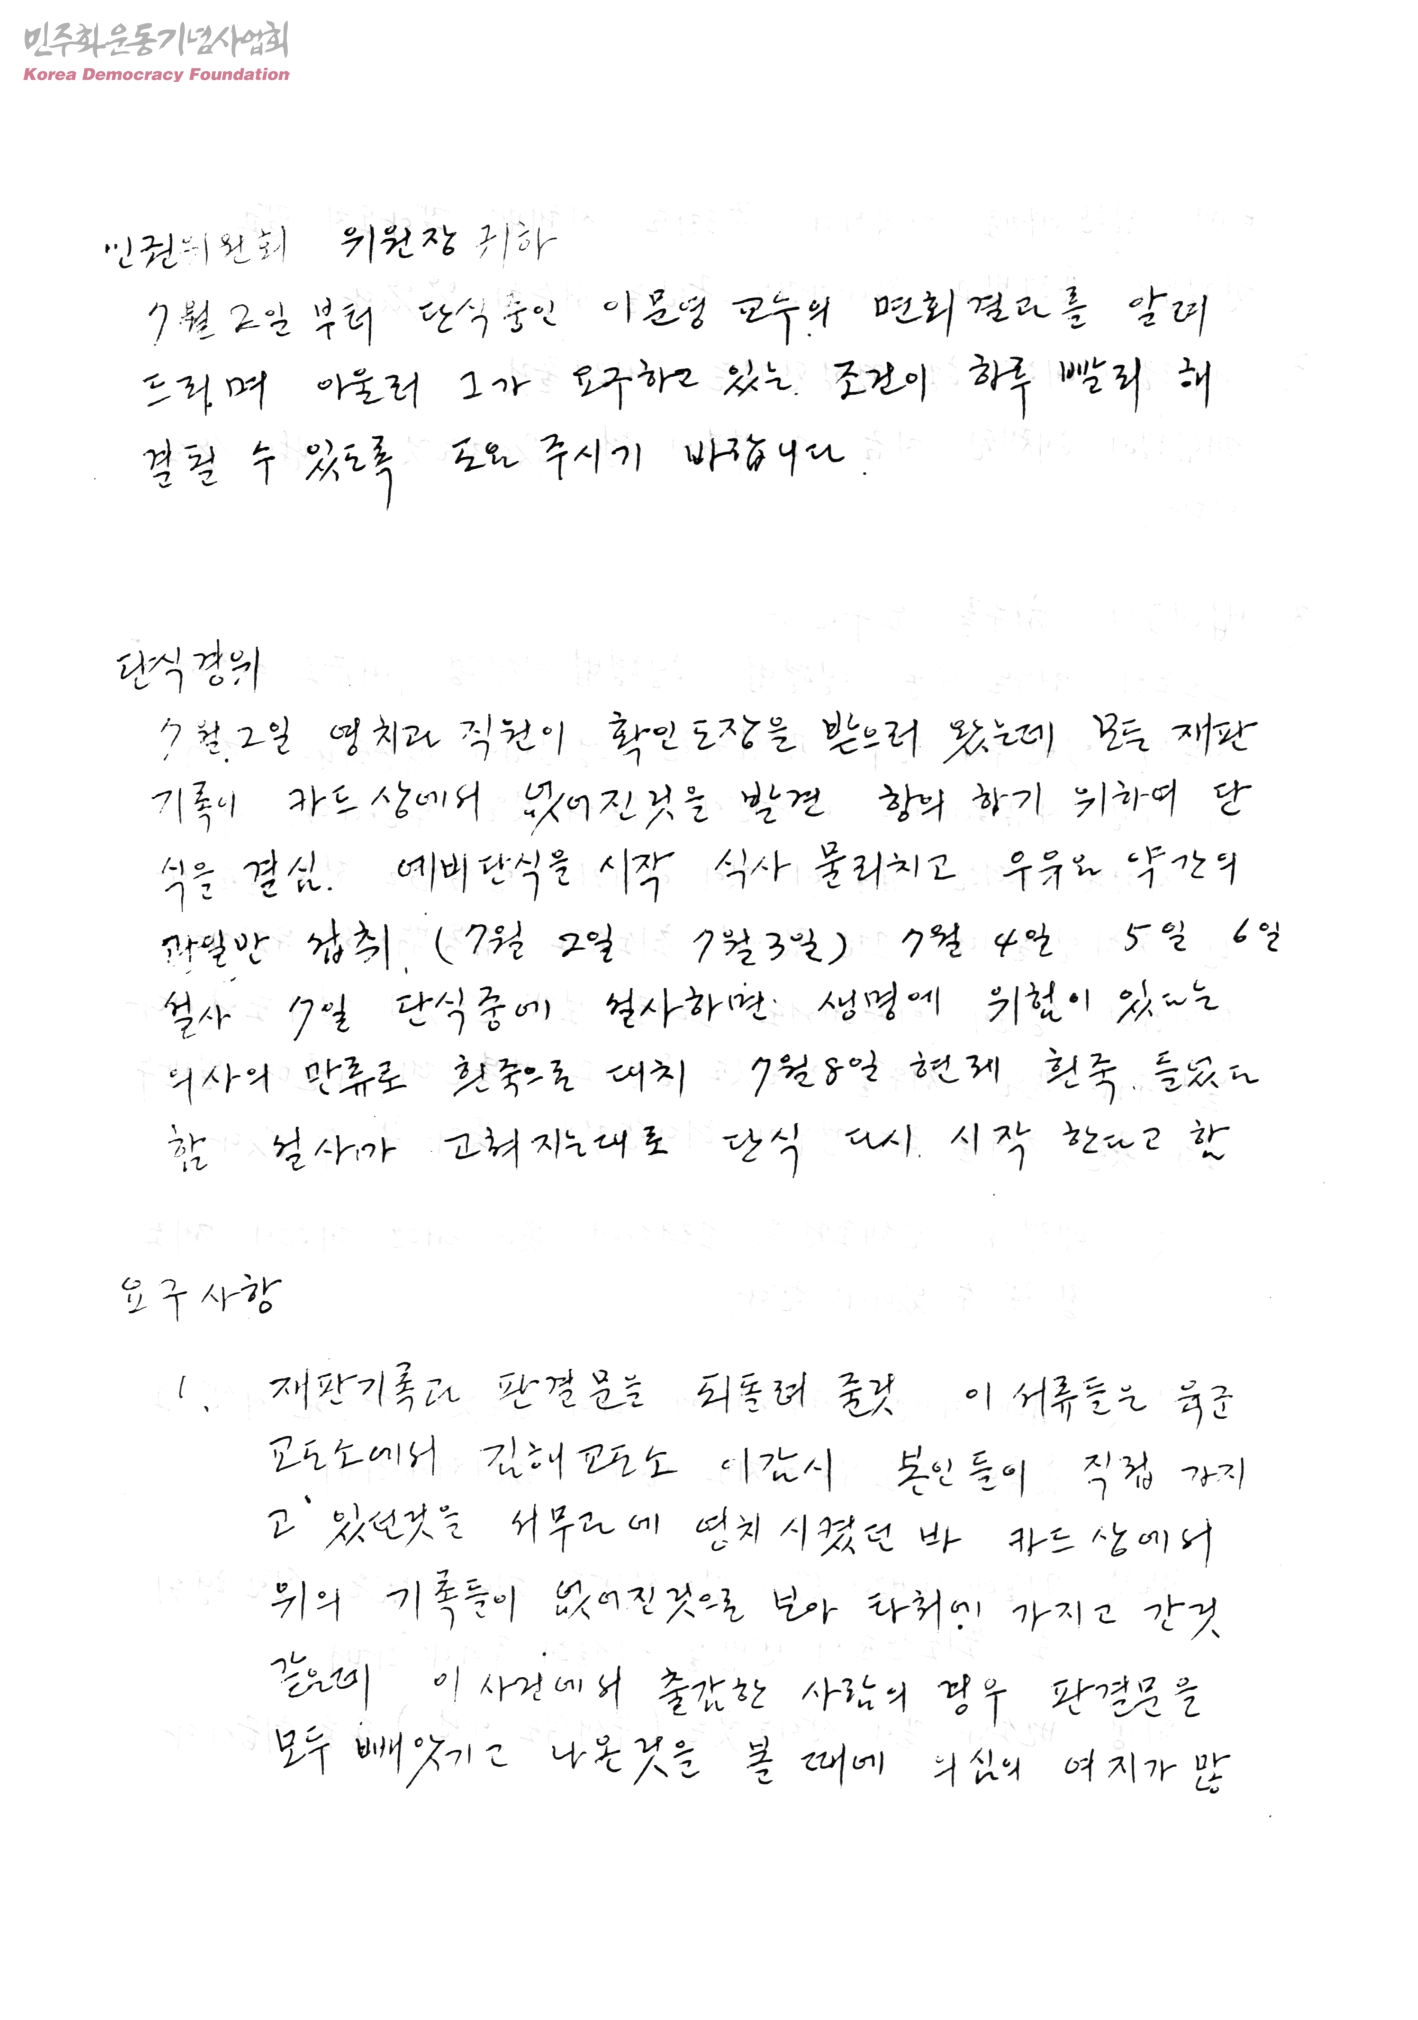 민주화운동기념사업회
Korea Democracy Foundation
인권위원회 위원장 귀하
7월 2일부터 단식중인 이문영 교수의 면회결과를 알려
드리며 아울러 그가 요구하고 있는 조건이 하루 빨리 해
결될 수 있도록 도와 주시기 바랍니다.
단식경위
7월 2일 영치과 직원이 확인도장을 받으러 왔는데 모든 재판
기록이 카드상에서 없어진것을 발견 항의 하기 위하여 단
식을 결심. 예비단식을 시작 식사 물리치고 우유와 약간의
과일만 섭취. (7월 2일 7월 3일) 7월 4일 5일 6일
설사 7일 단식중에 설사하면 생명에 위험이 있다는
의사의 만류로 흰죽으로 대치 7월 8일 현재 흰죽 들었다
함 설사가 고쳐지는대로 단식 다시 시작 한다고 함
요구사항
1. 재판기록과 판결문을 되돌려 줄것 이 서류들은 육군
교도소에서 김해교도소 이감시 본인들이 직접 가지
고 있던것을 서무과에 영치시켰던 바 카드상에서
위의 기록들이 없어진것으로 보아 타처에 가지고 간것
같은데 이 사건에서 출감한 사람의 경우 판결문을
모두 빼앗기고 나온것을 볼 때에 의심의 여지가 많